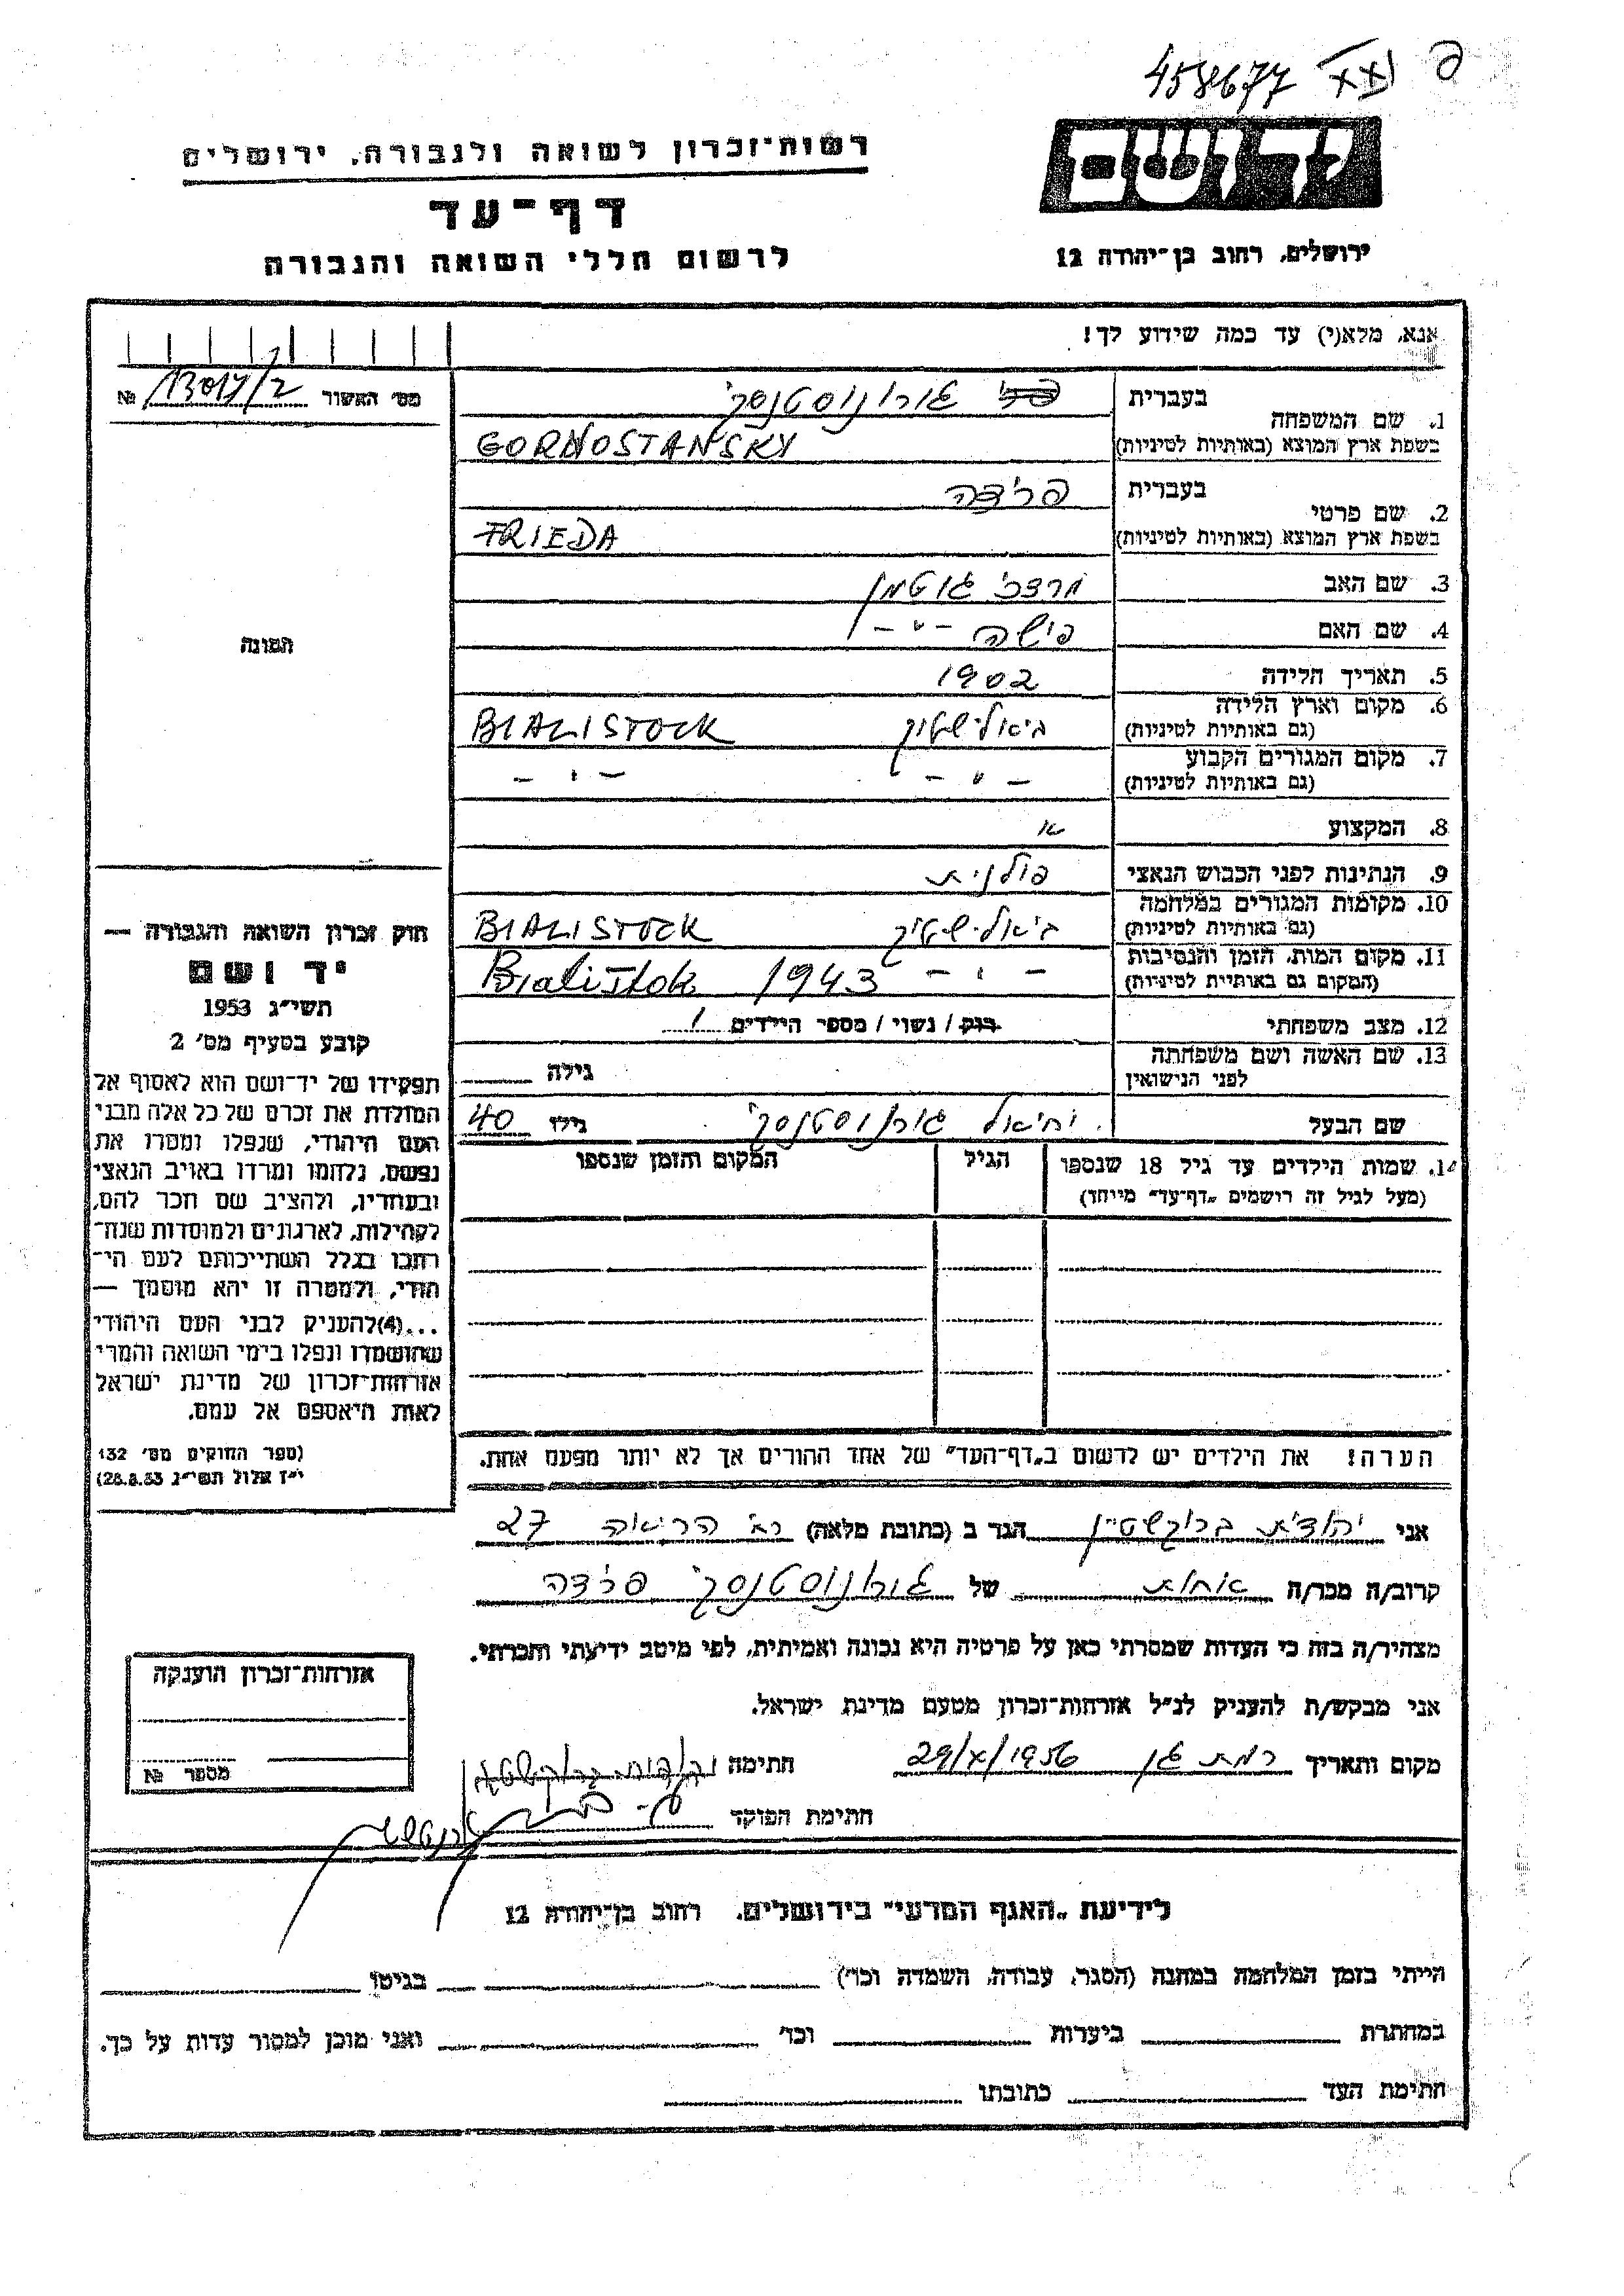 458677
רשות־זכרון לשואה ולגבורה, ירושלים
דף־עד
לרשום חללי השואה והגבורה
יד ושם
ירושלים, רחוב בן־יהודה 12
אנא, מלא(י) עד כמה שידוע לך!
מס׳ האשור 13017/2 №
1. שם המשפחה
בעברית גורנוסטנסקי
בשפת ארץ המוצא (באותיות לטיניות) GORNOSTANSKY
2. שם פרטי
בעברית פרידה
בשפת ארץ המוצא (באותיות לטיניות) FRIEDA
3. שם האב מרדכי גוטמן
4. שם האם — " —
5. תאריך הלידה 1902
6. מקום וארץ הלידה
(גם באותיות לטיניות) ביאלישטוק BIALISTOCK
7. מקום המגורים הקבוע
(גם באותיות לטיניות) — " — — " —
8. המקצוע
9. הנתינות לפני הכבוש הנאצי פולנית
10. מקומות המגורים במלחמה
(גם באותיות לטיניות) ביאלישטוק BIALISTOCK
11. מקום המות, הזמן והנסיבות
(המקום גם באותיות לטיניות) — " — 1943 Bialistok
12. מצב משפחתי רוק / נשוי / מספר הילדים 1
13. שם האשה ושם משפחתה
לפני הנישואין
גילה
שם הבעל יחיאל גורנוסטנסקי גילו 40
14. שמות הילדים עד גיל 18 שנספו
(מעל לגיל זה רושמים „דף־עד” מייחד)
הגיל
המקום והזמן שנספו
הערה! את הילדים יש לרשום ב„דף־העד” של אחד ההורים אך לא יותר מפעם אחת.
תמונה
חוק זכרון השואה והגבורה —
יד ושם
תשי״ג 1953
קובע בסעיף מס׳ 2
תפקידו של יד־ושם הוא לאסוף אל
המולדת את זכרם של כל אלה מבני
העם היהודי, שנפלו ומסרו את
נפשם, נלחמו ומרדו באויב הנאצי
ובעוזריו, ולהציב שם וזכר להם,
לקהילות, לארגונים ולמוסדות שנח־
רבו בגלל השתייכותם לעם הי־
הודי, ולמטרה זו יהא מוסמך —
...(4)להעניק לבני העם היהודי
שהושמדו ונפלו בימי השואה והמרי
אזרחות־זכרון של מדינת ישראל
לאות היאספם אל עמם.
(ספר החוקים מס׳ 132
י״ז אלול תשי״ג 28.8.53)
אני יהודית ברוקשטיין הגר ב (כתובת מלאה) הרואה 27
קרוב/ה מכר/ה אחות של גורנוסטנסקי פרידה
מצהיר/ה בזה כי העדות שמסרתי כאן על פרטיה היא נכונה ואמיתית, לפי מיטב ידיעתי והכרתי.
אני מבקש/ת להעניק לנ״ל אזרחות־זכרון מטעם מדינת ישראל.
מקום ותאריך רמת גן 29/X/1956 חתימה
חתימת הפוקד
אזרחות־זכרון הוענקה
מספר №
לידיעת „האגף המדעי” בירושלים, רחוב בן־יהודה 12
הייתי בזמן המלחמה במחנה (הסגר, עבודה, השמדה וכו׳) בגיטו
במחתרת ביערות וכו׳ ואני מוכן למסור עדות על כך.
חתימת העד כתובתו